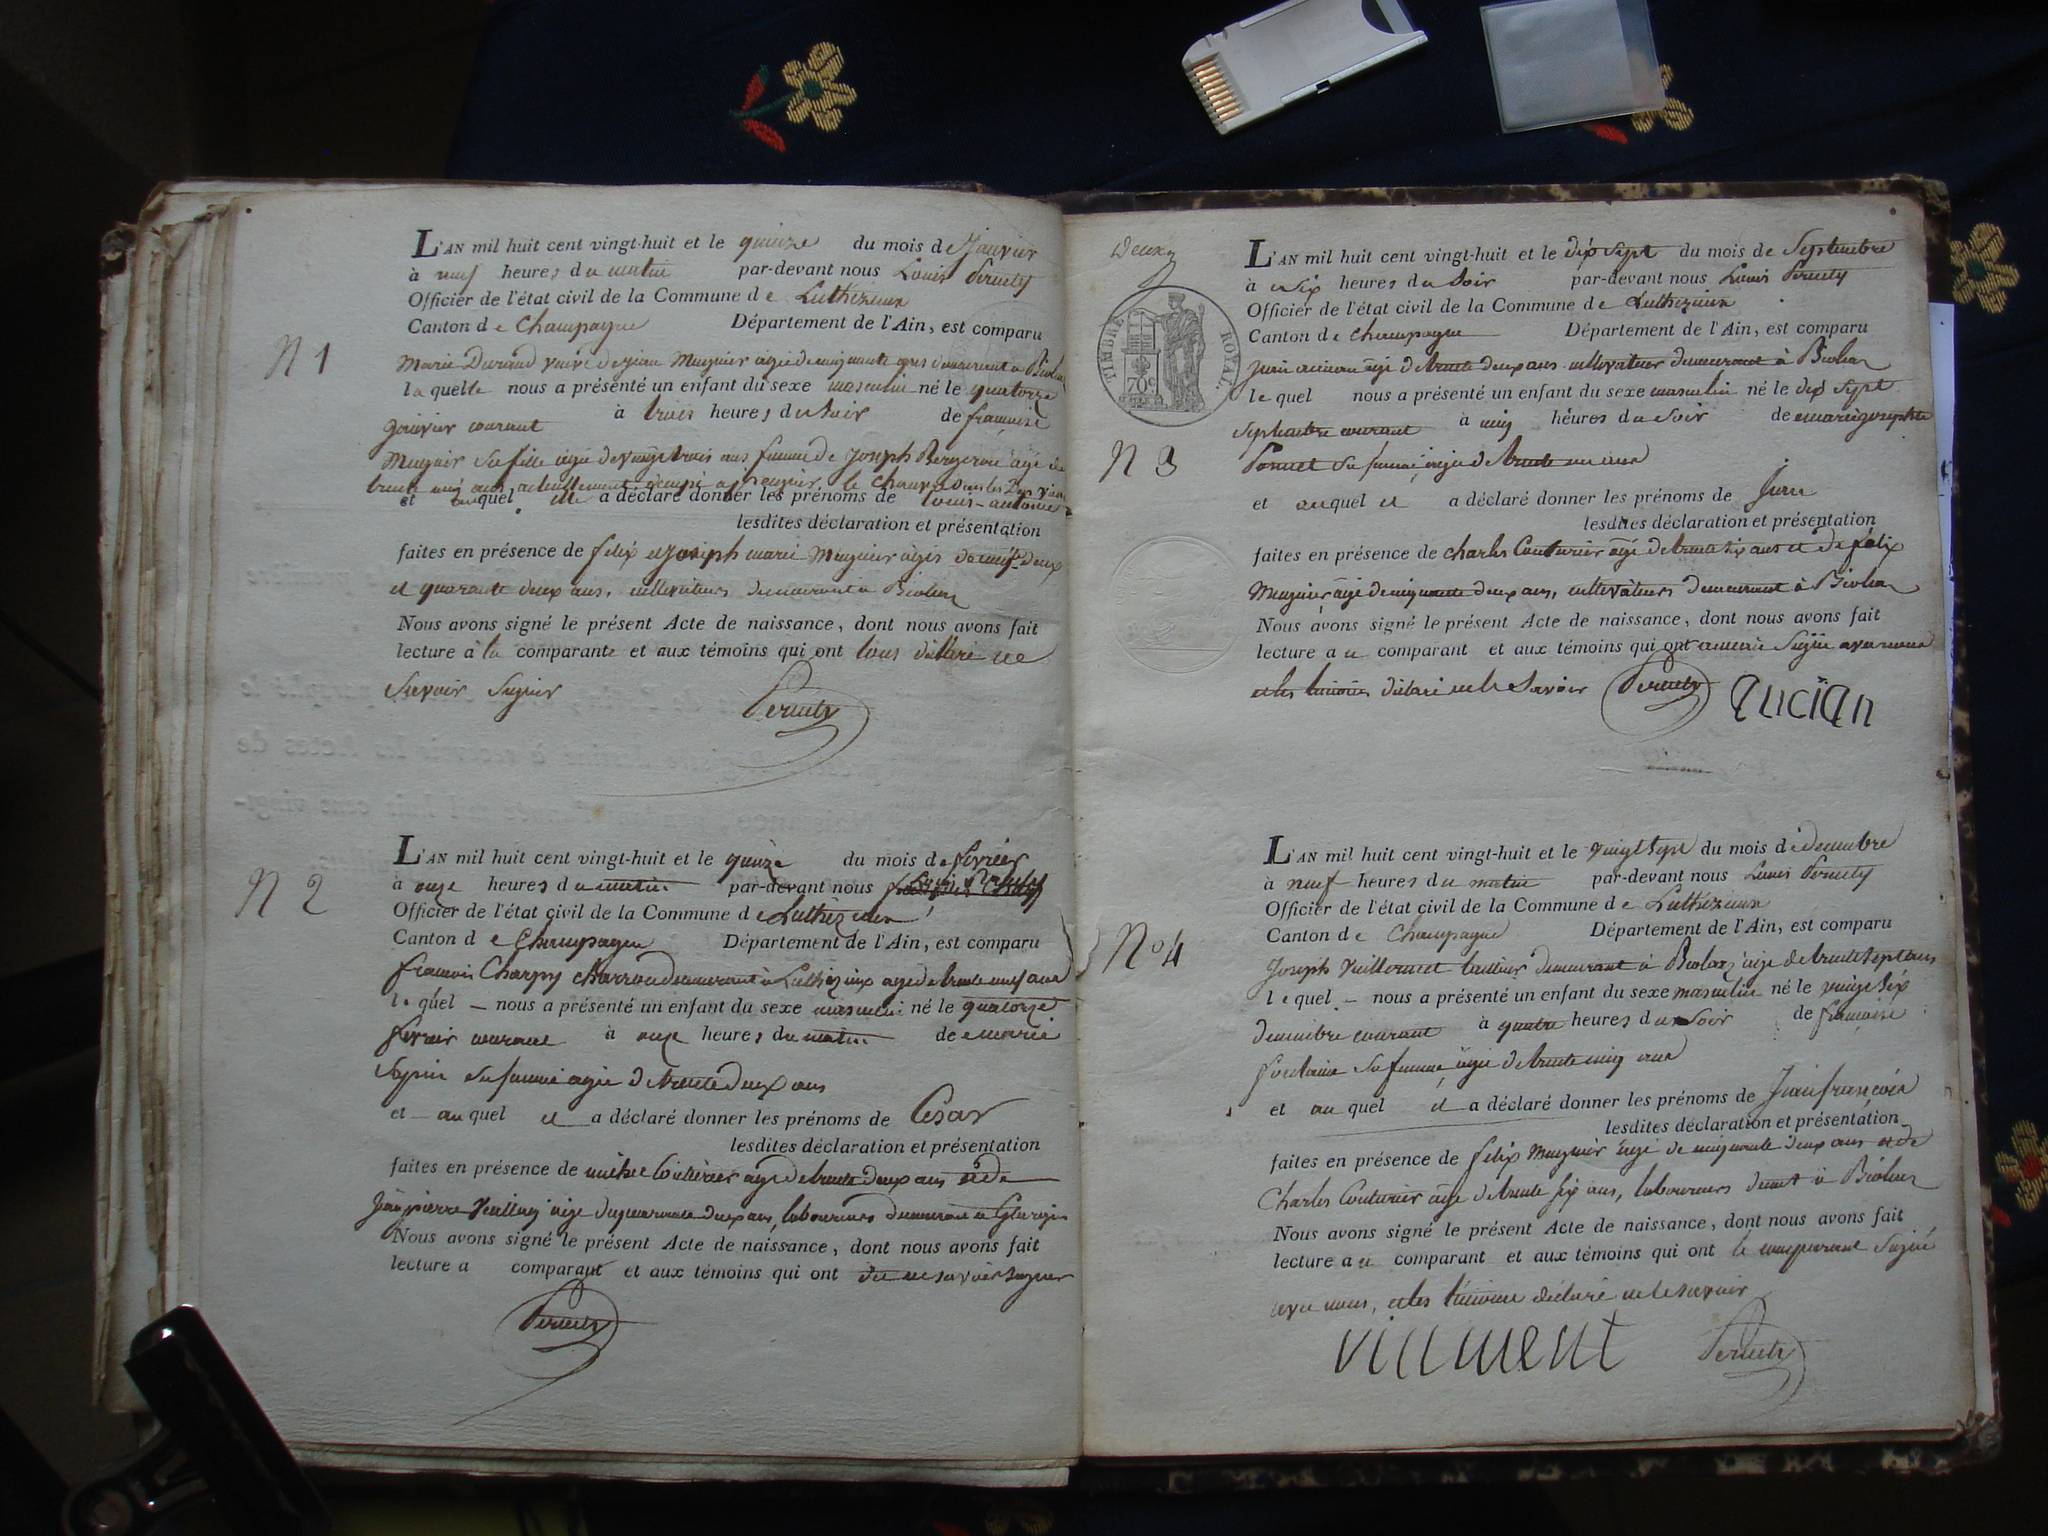 N 1
L'AN mil huit cent vingt-huit et le quinze du mois de Janvier
à neuf heures du matin par-devant nous Louis
Officier de l'état civil de la Commune de Luthézieux
Canton de Champagne Département de l'Ain, est comparu
Marie Durand veuve de jean Mugnier agée de cinquante ans demeurant à
la quelle nous a présenté un enfant du sexe masculin né le quatorze
janvier courant à trois heures du soir de françoise
Mugnier sa fille agée de vingt trois ans femme de Joseph agé de
trente ans actuellement
et auquel elle a déclaré donner les prénoms de louis-antoine
lesdites déclaration et présentation
faites en présence de felix et joseph marie Mugnier agés de deux
et quarante deux ans, cultivateurs demeurant à
Nous avons signé le présent Acte de naissance, dont nous avons fait
lecture à la comparante et aux témoins qui ont tous déclaré ne
Savoir Signer
N 2
L'AN mil huit cent vingt-huit et le quinze du mois de fevrier
à onze heures du matin par-devant nous
Officier de l'état civil de la Commune de Luthézieux
Canton de Champagne Département de l'Ain, est comparu
francois Charpy charron demeurant à Luthézieux agé de trente neuf ans
le quel – nous a présenté un enfant du sexe masculin né le quatorze
fevrier courant à onze heures du matin de marie
sa femme agée de trente deux ans
et auquel il a déclaré donner les prénoms de Cesar
lesdites déclaration et présentation
faites en présence de michel Couturier agé de trente deux ans et de
jean pierre agé de quarante deux ans, laboureurs demeurant à
Nous avons signé le présent Acte de naissance, dont nous avons fait
lecture a comparant et aux témoins qui ont dit ne savoir signer
Deux
TIMBRE ROYAL
70 c
N 3
L'AN mil huit cent vingt-huit et le dix sept du mois de Septembre
à six heures du Soir par-devant nous Louis
Officier de l'état civil de la Commune de Luthézieux
Canton de Champagne Département de l'Ain, est comparu
jean agé de trente deux ans cultivateur demeurant à
le quel nous a présenté un enfant du sexe masculin né le dix sept
Septembre courant à cinq heures du soir de marie josephte
sa femme, agée de trente ans
et auquel il a déclaré donner les prénoms de Jean
lesdites déclaration et présentation
faites en présence de charles Couturier agé de trente six ans et de félix
Mugnier agé de cinquante deux ans, cultivateurs demeurant à
Nous avons signé le présent Acte de naissance, dont nous avons fait
lecture au comparant et aux témoins qui ont signé avec nous
et les témoins déclaré ne le Savoir
ancian
No 4
L'AN mil huit cent vingt-huit et le vingt sept du mois de decembre
à neuf heures du matin par-devant nous Louis
Officier de l'état civil de la Commune de Luthézieux
Canton de Champagne Département de l'Ain, est comparu
Joseph tailleur demeurant à agé de trente sept ans
le quel – nous a présenté un enfant du sexe masculin né le vingt six
decembre courant à quatre heures du Soir de françoise
fontaine Sa femme agée de trente cinq ans
et auquel il a déclaré donner les prénoms de Jean françois
lesdites déclaration et présentation
faites en présence de felix Mugnier agé de cinquante deux ans et de
Charles Couturier agé de trente six ans, laboureurs à
Nous avons signé le présent Acte de naissance, dont nous avons fait
lecture au comparant et aux témoins qui ont le comparant Signé
avec nous, et les témoins déclaré ne le savoir